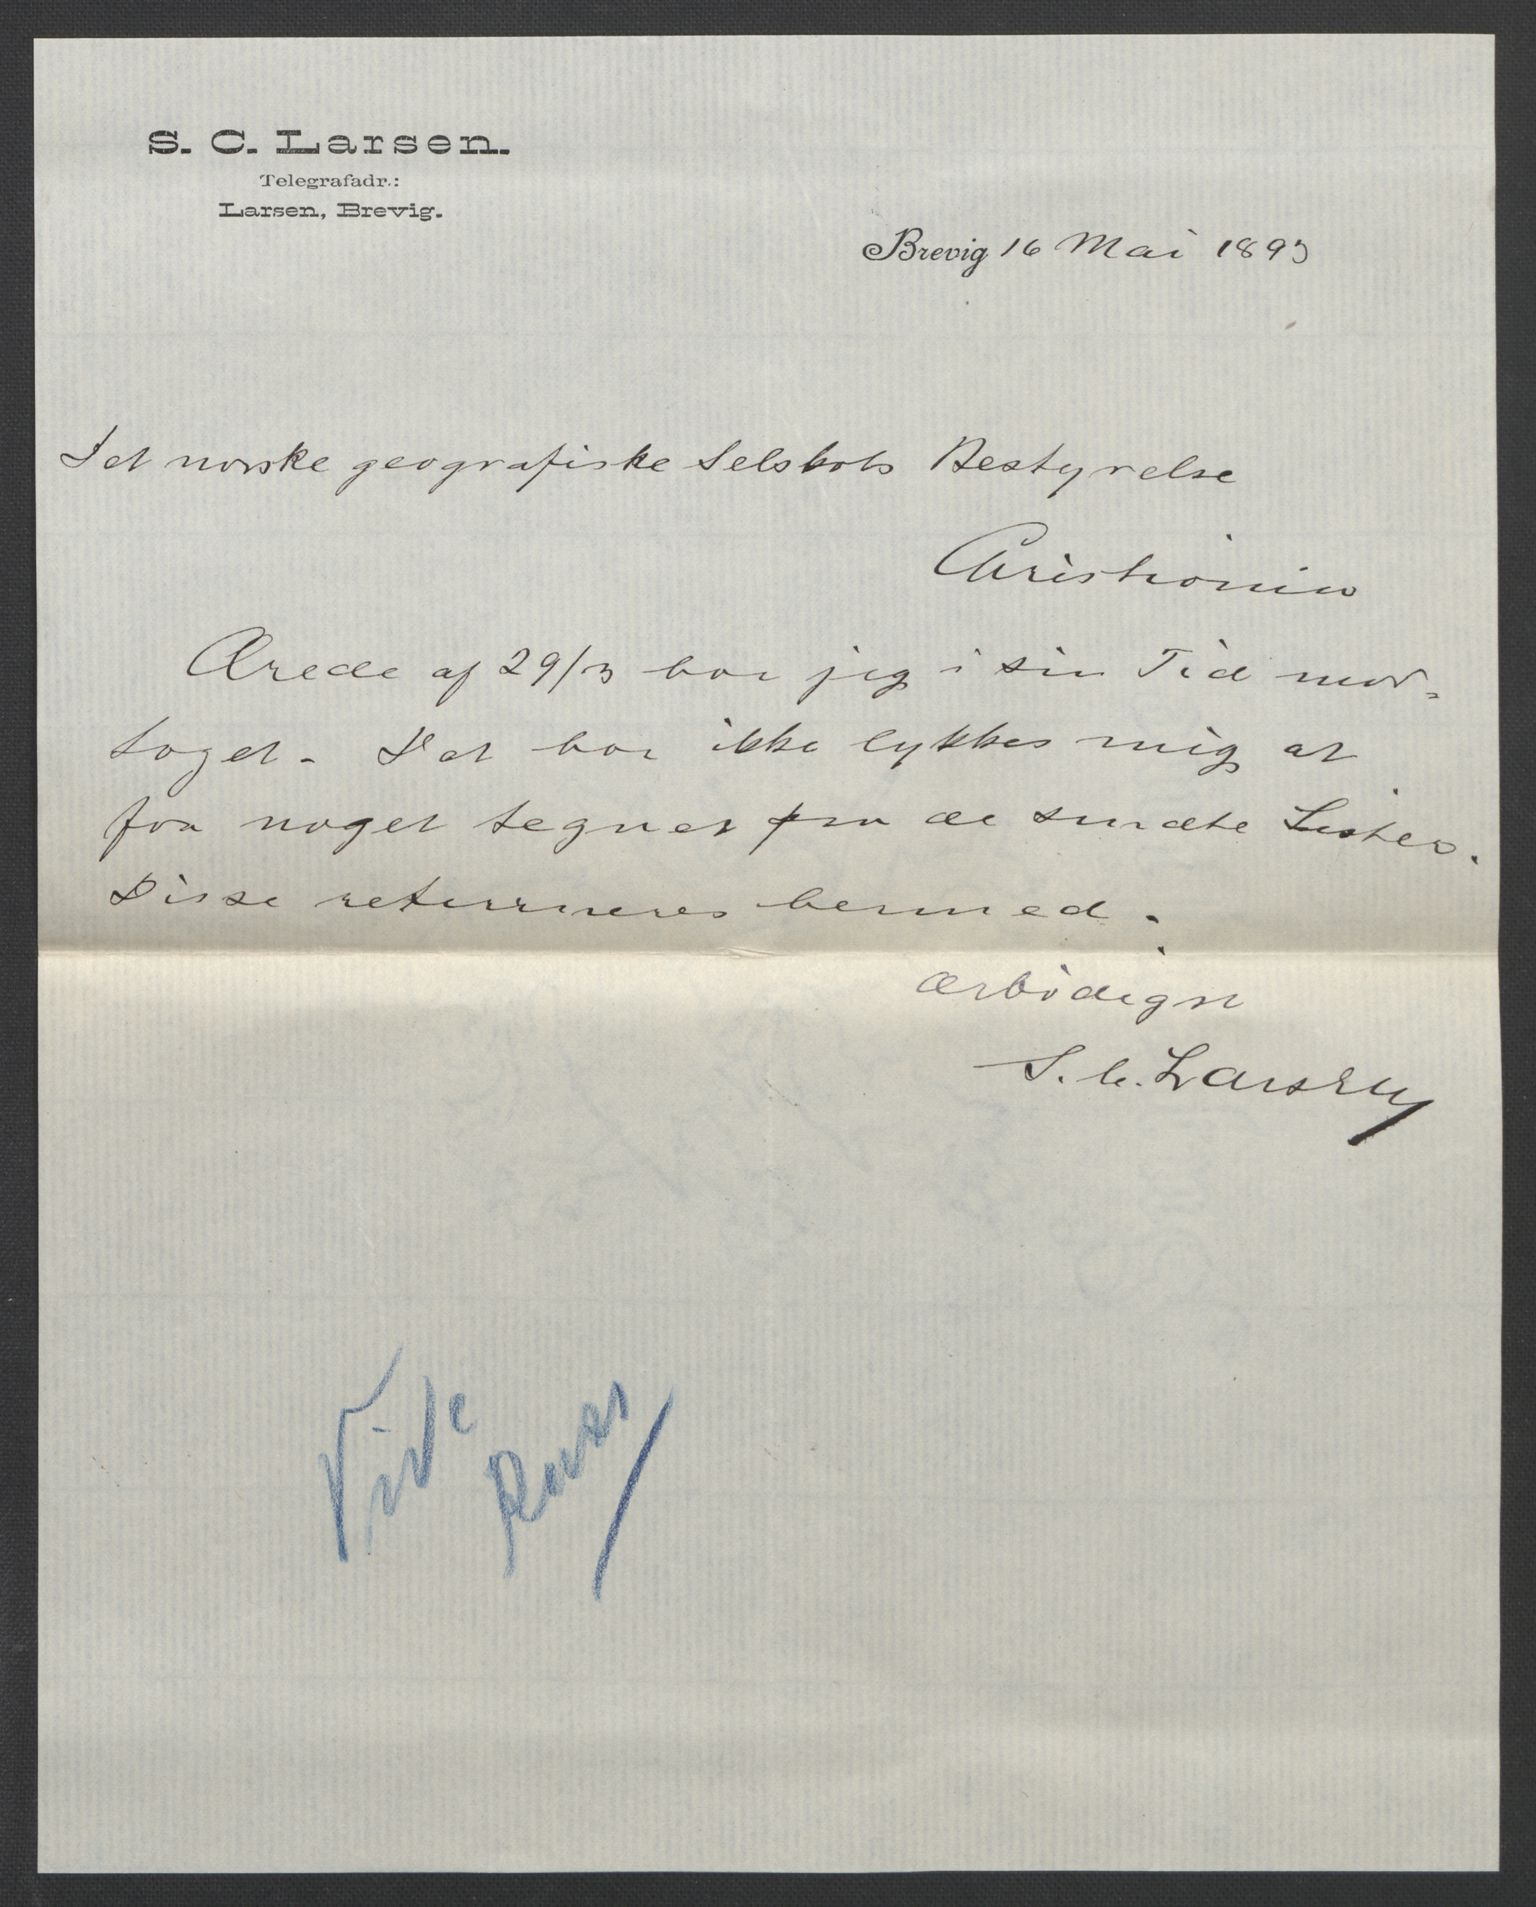 S. C. Larsen.
Telegrafadr.:
Larsen, Brevig.
Brevig 16 Mai 1893
Det norske geografiske Selskabs Bestyrelse
Christiania
Ærede af 29/3 har jeg i sin Tid mod-
taget. Det har ikke lykkes mig at
faa noget tegnet paa de sendte Lister.
Disse returneres hermed.
Ærbødigst
S. C. Larsen